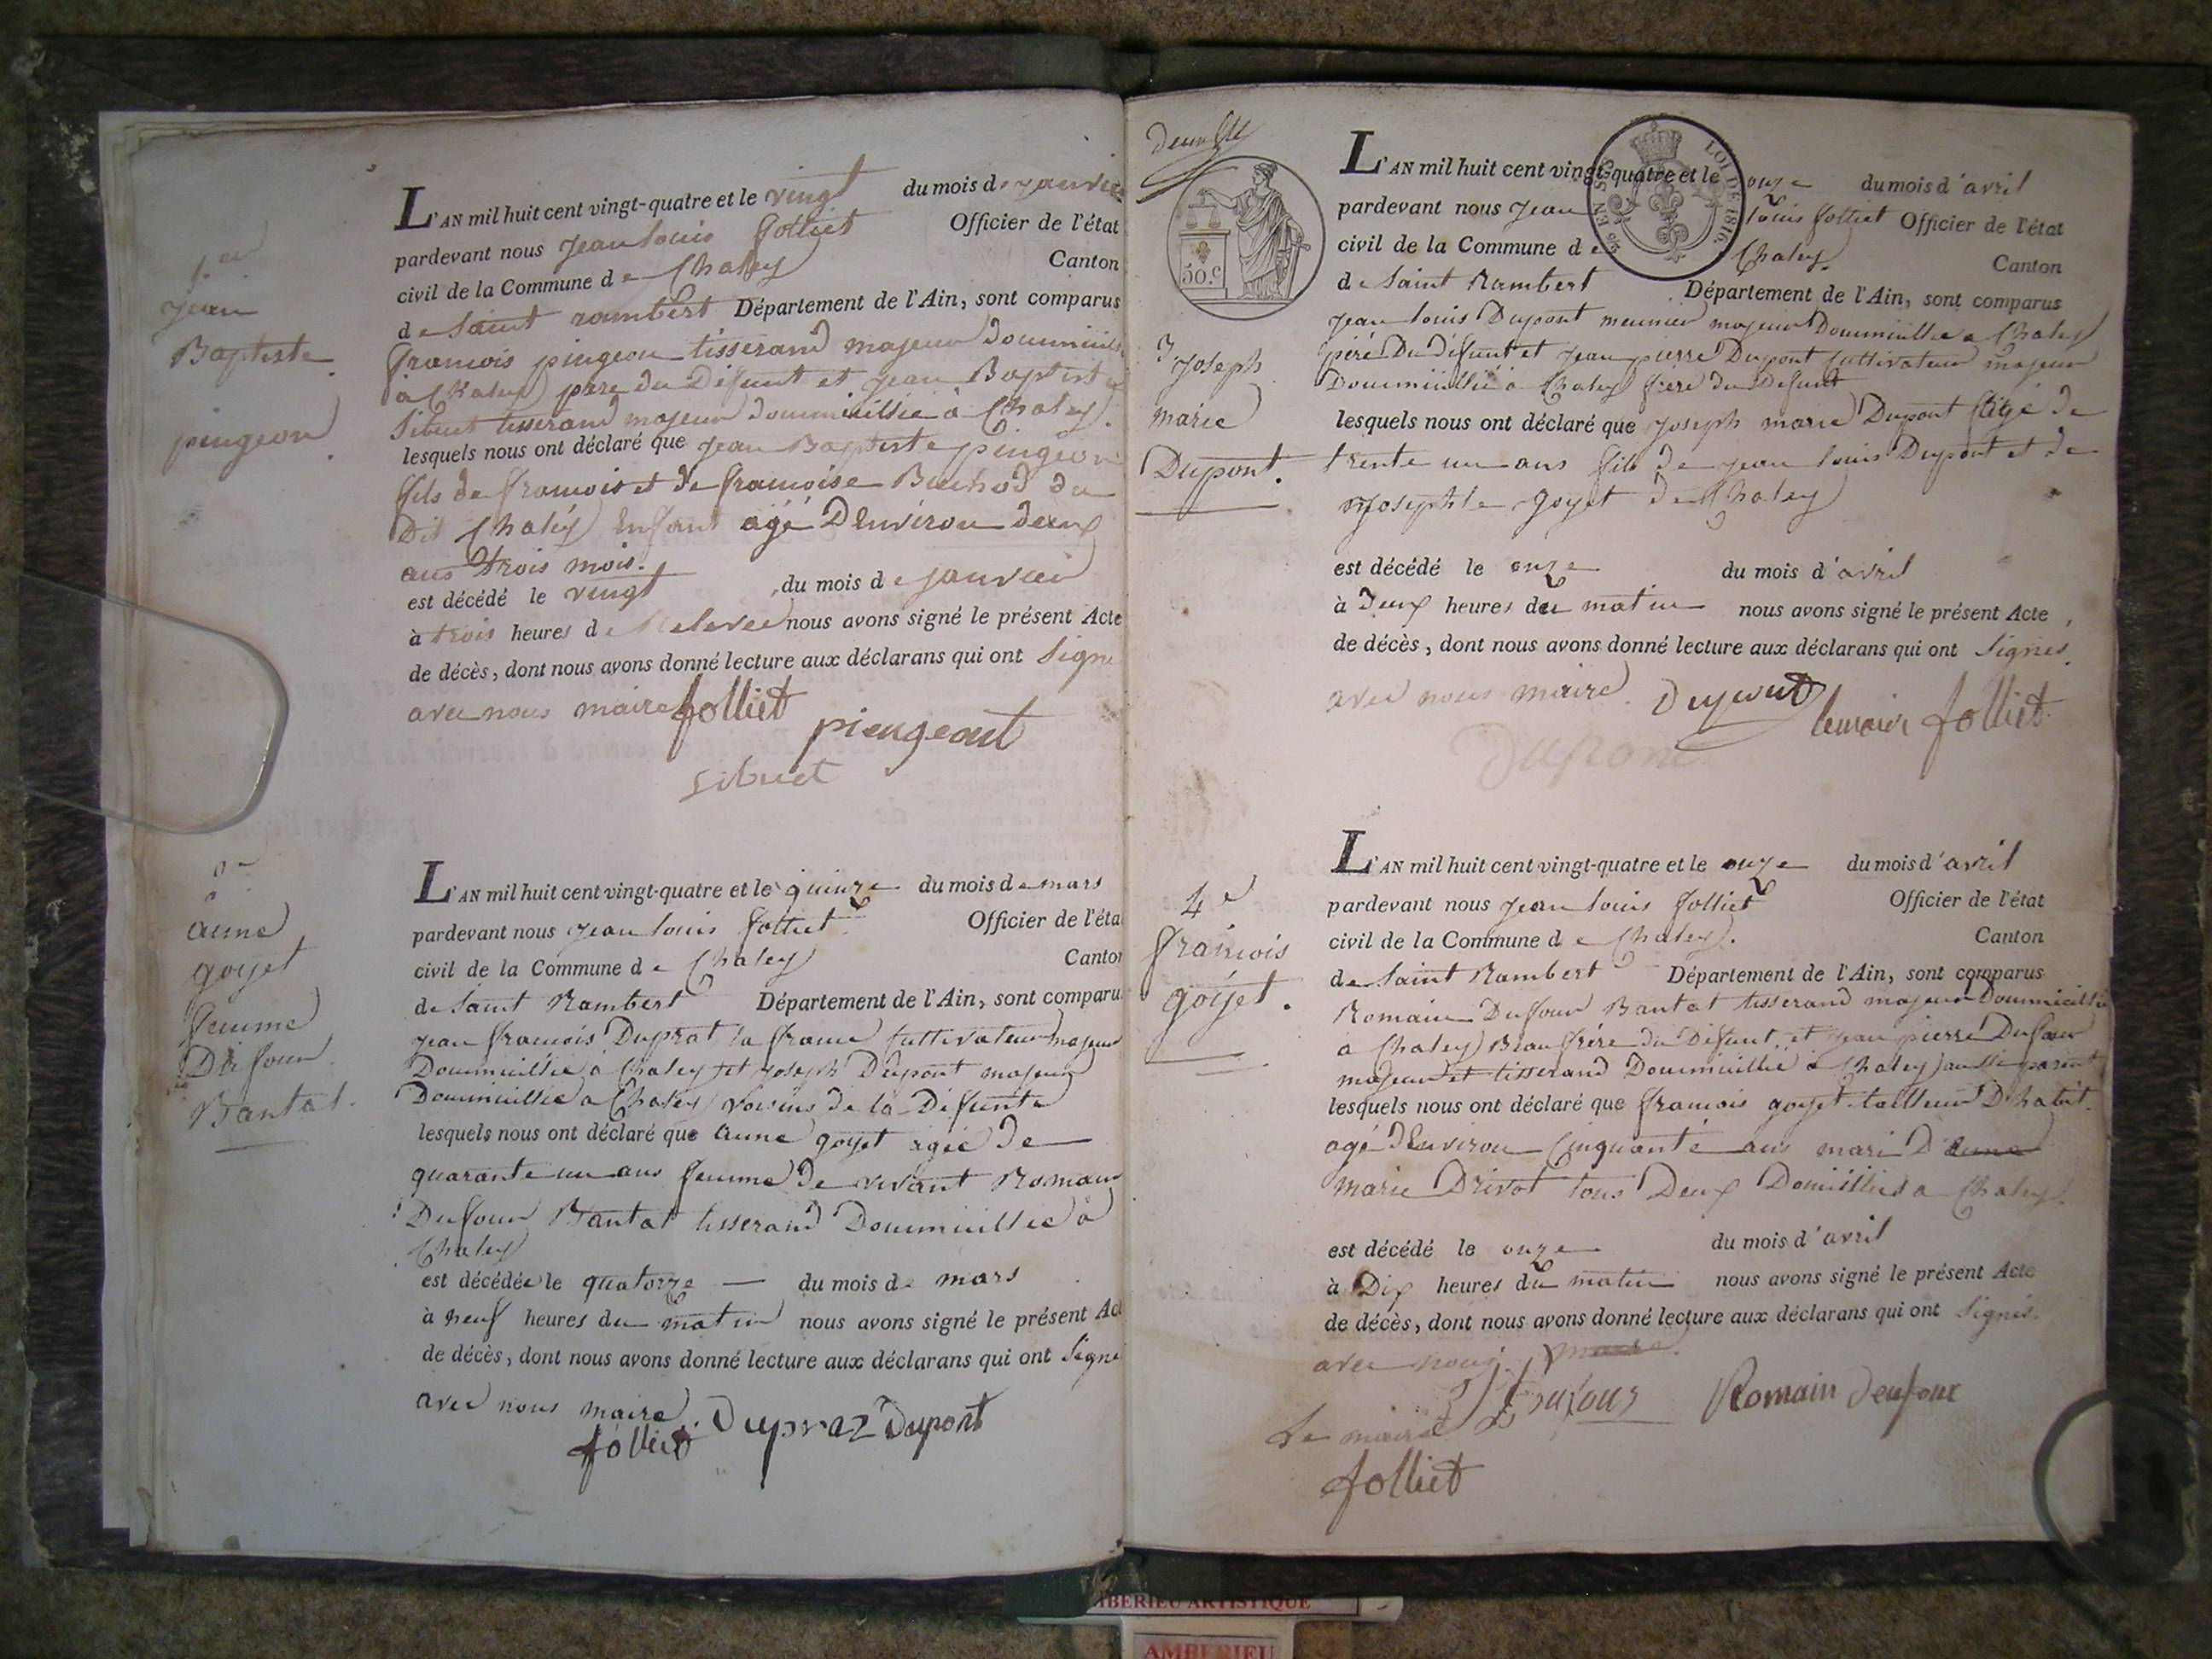 1.er
Jean
Baptiste
pingeon
L'AN mil huit cent vingt-quatre et le vingt du mois de janvier
pardevant nous Jean Louis folliet Officier de l'état
civil de la Commune de Chaley Canton
de Saint rambert Département de l'Ain, sont comparus
francois pingeon tisserand majeur doumicilié
a Chaley père du Défunt et Jean Baptiste
Sibuet tisserand majeur doumicillié à Chaley.
lesquels nous ont déclaré que Jean Baptiste pingeon
fils de francois et de francoise Buchod du
Dit Chaley Enfant agé D'Environ deux
ans trois mois.
est décédé le vingt du mois de janvier
à trois heures de Relevée nous avons signé le présent Acte
de décès, dont nous avons donné lecture aux déclarans qui ont Signé
avec nous maire folliet
piengeont
Sibuet
2e
anne
goyet
femme
Dufour
Bantat.
L'AN mil huit cent vingt-quatre et le quinze du mois de mars
pardevant nous Jean Louis folliet Officier de l'éta
civil de la Commune de Chaley Canton
de Saint Rambert Département de l'Ain, sont comparu
Jean francois Duprat la france Cultivateur majeur
Doumicillié à Chaley et Joseph Dupont majeur
Doumicillié a Chaley voisins de la Défunte
lesquels nous ont déclaré que anne goyet agée de
quarante un ans femme de vivant Romain
Dufour Bantat tisserand Doumicillié à
Chaley
est décédée le quatorze — du mois de mars
à neuf heures du matin nous avons signé le présent Act
de décès, dont nous avons donné lecture aux déclarans qui ont Signé
avec nous maire.
folliet Dupraz Dupont
50.c
LOI DE 1816.
3
Joseph
marie
Dupont.
L'AN mil huit cent vingt-quatre et le onze du mois d'avril
pardevant nous Jean Louis folliet Officier de l'état
civil de la Commune de Chaley. Canton
de Saint Rambert Département de l'Ain, sont comparus
Jean Louis Dupont meunier majeur Doumicillié a Chaley
père Du Défunt et Jean pierre Dupont Cultivateur majeur
Doumicillié à Chaley frère du Défunt
lesquels nous ont déclaré que Joseph marie Dupont agé de
trente un ans fils de Jean Louis Dupont et de
Josephte Goyet de Chaley
est décédé le onze du mois d'avril
à Deux heures du matin nous avons signé le présent Acte
de décès, dont nous avons donné lecture aux déclarans qui ont Signés.
avec nous maire. Dupont lemaire folliet
Dupont
4e
francois
goyet.
L'AN mil huit cent vingt-quatre et le onze du mois d'avril
pardevant nous Jean Louis folliet Officier de l'état
civil de la Commune de Chaley. Canton
de Saint Rambert Département de l'Ain, sont comparus
Romain Dufour Bantat tisserand majeur Doumicillié
a Chaley Beau frère du Défunt, et Jean pierre Dufour
majeur et tisserand Doumicillié à Chaley aussi parent
lesquels nous ont déclaré que francois goyet tailleur D'habit.
agé D'Environ Cinquante ans mari D'anne
marie Drivot tous Deux Domicilliés a Chaley.
est décédé le onze du mois d'avril
à Dix heures du matin nous avons signé le présent Acte
de décès, dont nous avons donné lecture aux déclarans qui ont Signés.
avec nous maire.
Dufour Romain Deufour
Le maire
folliet
AMBERIEU ARTISTIQUE
AMBERIEU